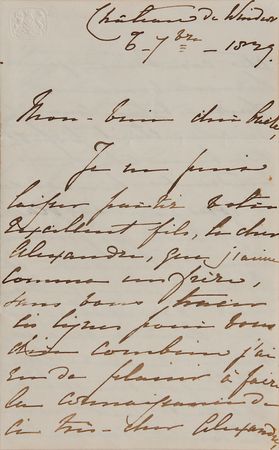 Château de Windsor
6 - 7bre - 1839.
Mon - bien cher
Je ne puis
laisser partir votre
excellent fils, le cher
Alexandre, que j'aime
comme un frère,
sans vous tracer
ces lignes pour vous
dire combien j'ai
eu de plaisir à faire
la connaissance de
ce très - cher Alexandre